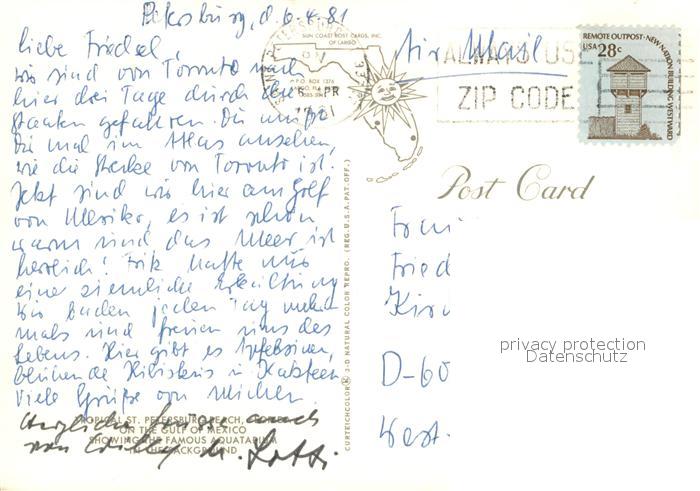 Petersburg, d. 6.4.81
liebe Friedel
wir sind von Toronto nach
hier drei Tage durch die
Staaten gefahren. Du mußt
Dir mal im Atlas ansehen,
wie die Strecke von Toronto ist.
Jetzt sind wir hier am Golf
von Mexiko, es ist schön
warm und das Meer ist
herrlich! Fritz hatte
eine ziemliche Erkältung
Wir baden jeden Tag mehr
mals und freuen uns des
Lebens. Hier gibt es Apfelsinen,
blühende Hibiskus in
Viele Grüße von
Herzliche Grüsse auch
von Willy u. Lotti
TROPICAL ST. PETERSBURG BEACH,
ON THE GULF OF MEXICO
SHOWING THE FAMOUS AQUATARIUM
IN THE BACKGROUND
SUN COAST POST CARDS, INC.
OF LARGO
P.O. BOX 1376
CURTEICHCOLOR® 3-D NATURAL COLOR REPRO. (REG. U.S.A. PAT. OFF.)
Air Mail
ALWAYS USE
ZIP CODE
REMOTE OUTPOST · NEW NATION BUILDING WESTWARD
USA 28c
Post Card
Fried
D-60
West.
privacy protection
Datenschutz